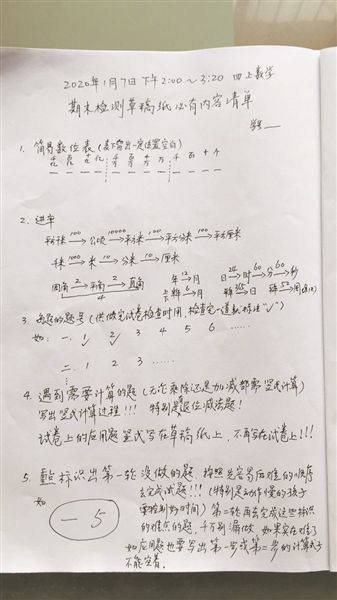 2020年1月7日下午2:00～3:20 四上数学
期末检测草稿纸必有内容清单
1. 简易数位表（表下留出一定位置空白）
千亿 百亿 十亿 亿 千万 百万 十万 万 千 百 十 个
2. 进率
平方千米 100→ 公顷 10000→ 平方米 100→ 平方分米 100→ 平方厘米
千米 1000→ 米 10→ 分米 10→ 厘米
年 12→ 月 日 24→ 时 60→ 分 60→ 秒
周角 2→ 平角 2→ 直角
4
6→ 月 365→ 日 52→ 周
3. 每题的题号（供做完试卷检查时用，检查完一道就标注“✓”）
如：一. 1 2 3 4 5 6 ……
二. 1 2 3 ……
4. 遇到需要计算的题（无论乘除还是加减都要竖式计算）
写出竖式计算过程!!! 特别是退位减法题!
试卷上的应用题竖式写在草稿纸上，不再写在试卷上!!!
5. 标识出第一轮没做的题 按照先容易后难的顺序
如 去完成试题!!!（特别是动作慢的孩子
一 5 要控制好时间）第二轮再去完成这些标识
的难点的题，千万别漏做 如果实在太难了
如应用题也要写出第一步或第二步的计算式子
不能空着.